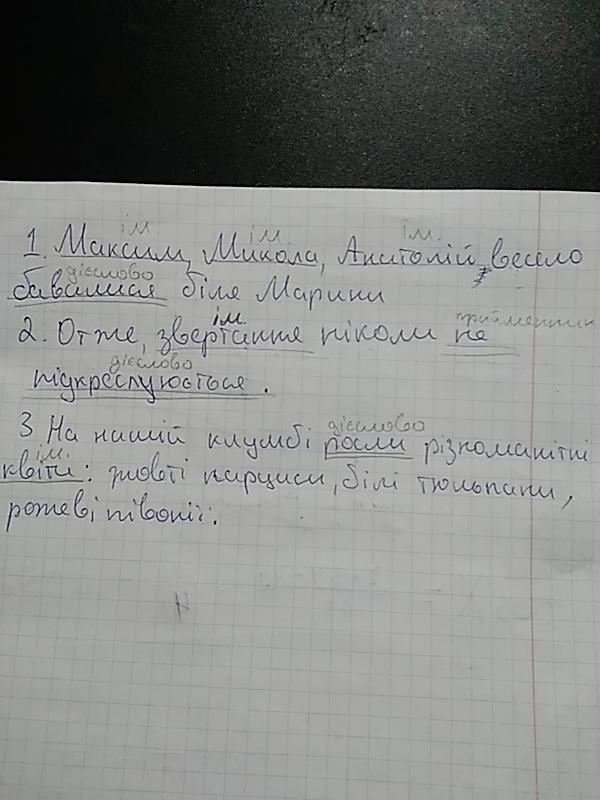 ім. ім. ім.
1. Максим, Микола, Анатолій весело
дієслово
бавилися біля Марини
ім. прийменник
2. Отже, звертання ніколи не
дієслово
підкреслюється.
дієслово
3 На нашій клумбі росли різноманітні
ім.
квіти: жовті нарциси, білі тюльпани,
рожеві півонії.